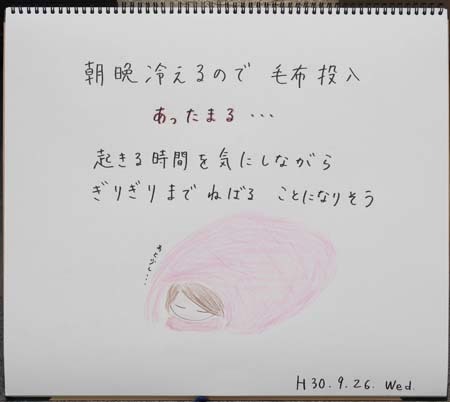 朝晩冷えるので 毛布投入
あったまる・・・
起きる時間を気にしながら
ぎりぎりまで ねばる ことになりそう
あと少し・・・
H30.9.26. Wed.